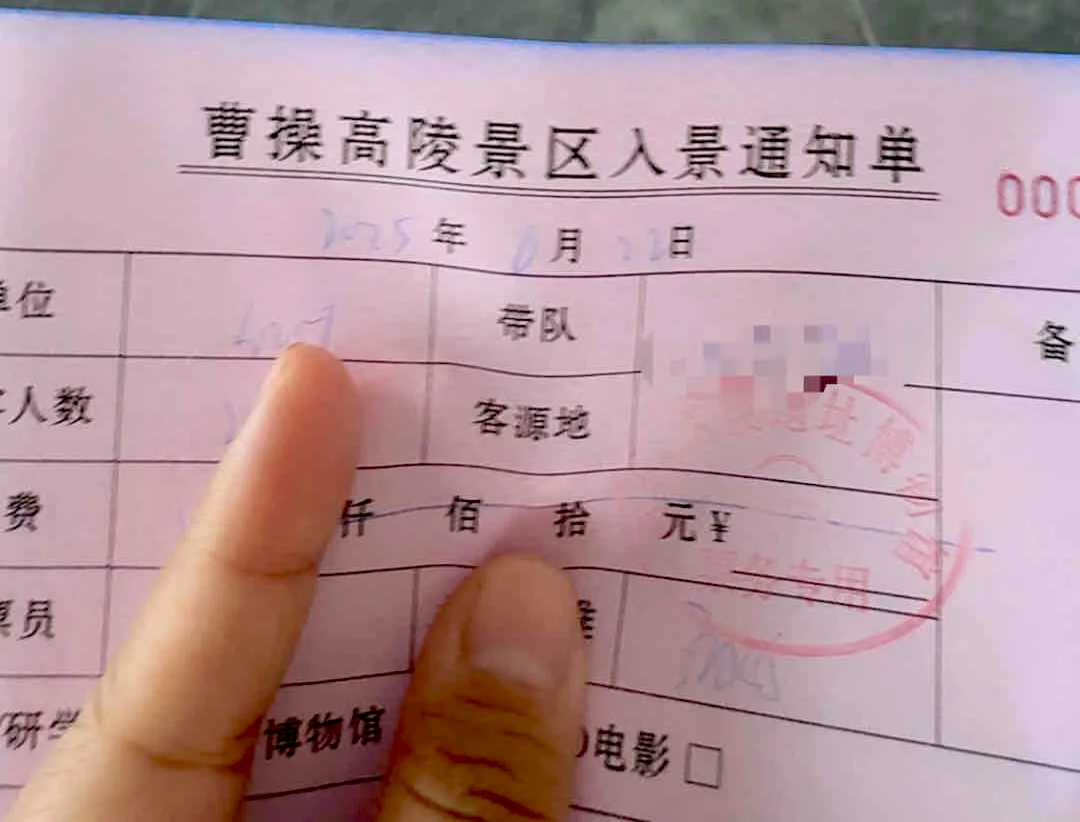 曹操高陵景区入景通知单
000
2025年6月22日
单位 带队 备
人数 客源地
费 仟 佰 拾 元¥
票员
研学 博物馆 电影□
址博
务专用